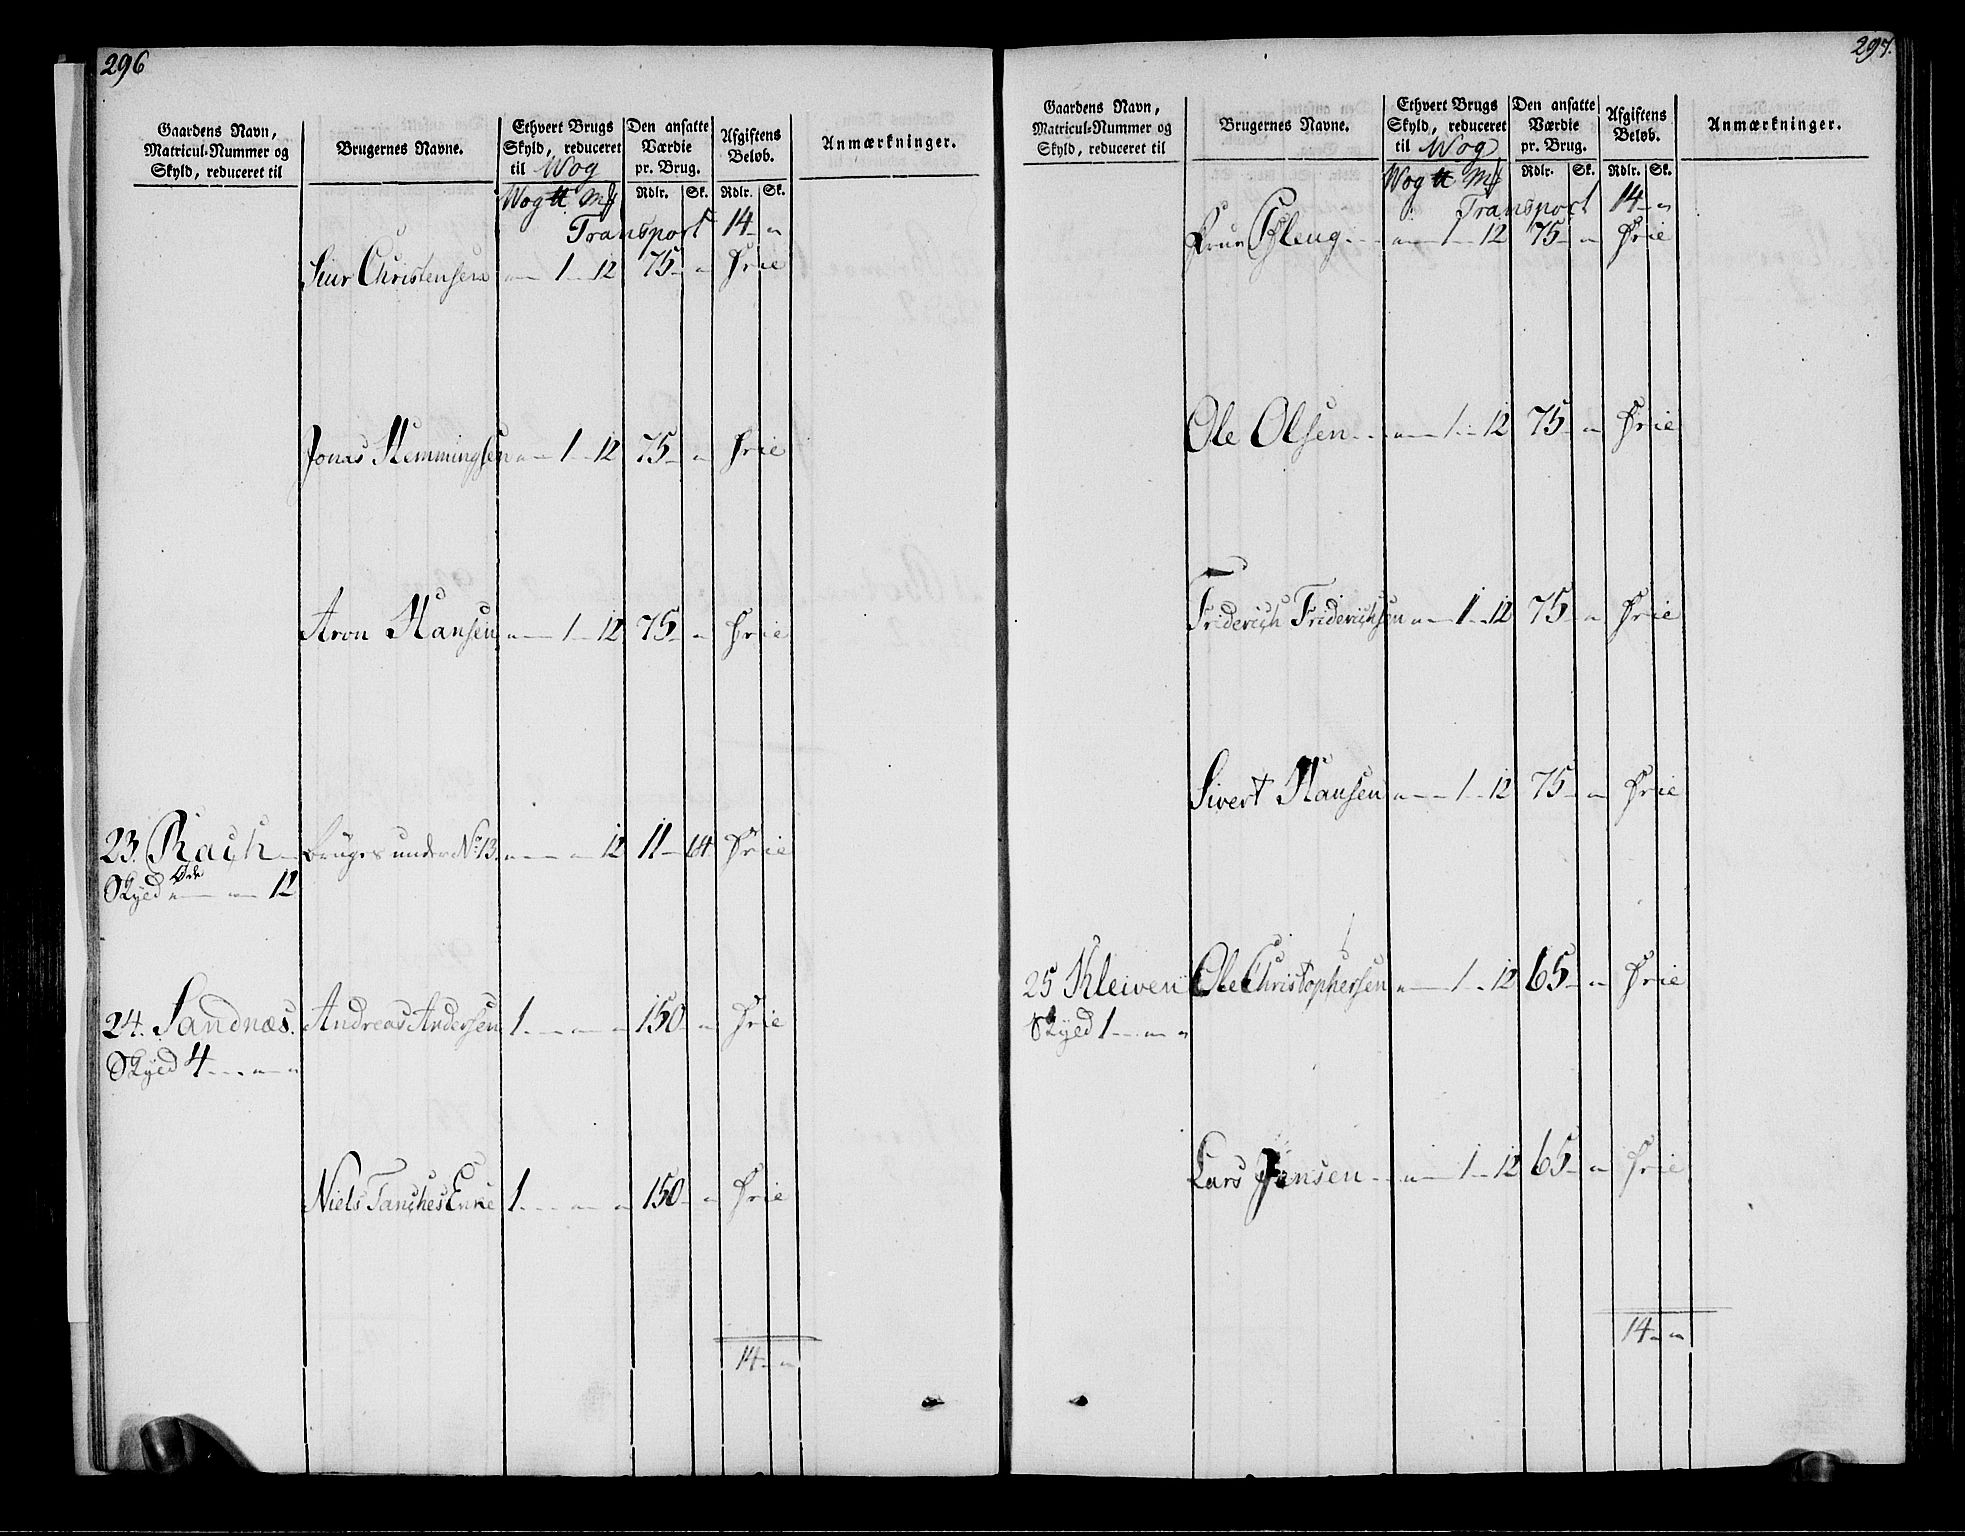 296
Gaardens Navn,
Matricul-Nummer og
Skyld, reduceret til
Brugernes Navne.
Ethvert Brugs
Skyld, reduceret
til Wog
Den ansatte
Værdie
pr. Brug.
Afgiftens
Beløb.
Anmærkninger.
Wog ℔ M℔ Rdlr. Sk. Rdlr. Sk.
Transport 14 - "
Siur Christensen " - 1 - 12 75 - " Frie
Jonas Hemmingsen " - 1 - 12 75 - " Frie
Aron Hansen " - 1 - 12 75 - " Frie
23. Rach bruges under No 13. " - " - 12 11 - 14 Frie
Øde
Skyld " - " - 12
24. Sandnæs. Andreas Andersen 1 - " - " 150 - " Frie
Skyld 4 - " - "
Niels Tanches Enke 1 - " - " 150 - " Frie
14 - "
297.
Gaardens Navn,
Matricul-Nummer og
Skyld, reduceret til
Brugernes Navne.
Ethvert Brugs
Skyld, reduceret
til Wog
Den ansatte
Værdie
pr. Brug.
Afgiftens
Beløb.
Anmærkninger.
Wog ℔ M℔ Rdlr. Sk. Rdlr. Sk.
Transport 14 - "
" - 1 - 12 75 - " Frie
Ole Olsen " - 1 - 12 75 - " Frie
Friderich Friderichsen " - 1 - 12 75 - " Frie
Sivert Hansen " - 1 - 12 75 - " Frie
25 Kleiven Ole Christophersen " - 1 - 12 65 - " Frie
Skyld 1 - " - "
Lars Jensen " - 1 - 12 65 - " Frie
14 - "